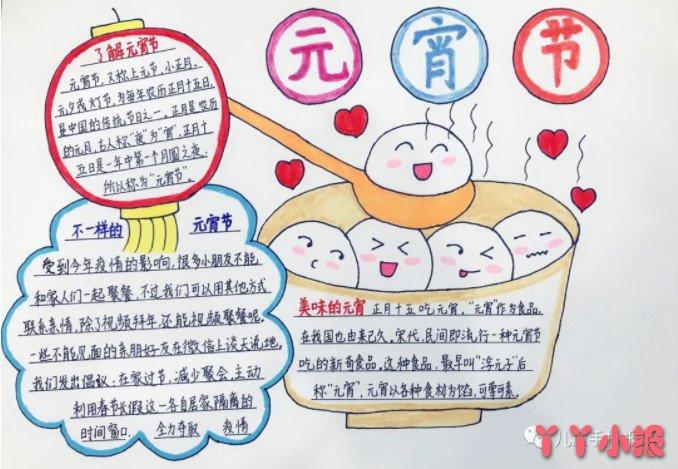 元宵节
了解元宵节
元宵节，又称上元节，小正月，
元夕或灯节，为每年农历正月十五日，
是中国的传统节日之一。正月是农历
的元月，古人称“夜”为“宵”，正月十
五日是一年中第一个月圆之夜，
所以称为“元宵节”。
不一样的 元宵节
受到今年疫情的影响，很多小朋友不能
和家人们一起聚餐，不过我们可以用其他方式
联系亲情，除了视频拜年，还能视频聚餐呢。
一些不能见面的亲朋好友在微信上谈天说地。
我们发出倡议：在家过节，减少聚会，主动
利用春节长假这一各自居家隔离的
时间窗口， 全力夺取 疫情
美味的元宵 正月十五吃元宵，“元宵”作为食品，
在我国也由来已久，宋代，民间即流行一种元宵节
吃的新奇食品。这种食品，最早叫“浮元子”后
称“元宵”，元宵以各种食材为馅，可荤可素。
丫丫小报